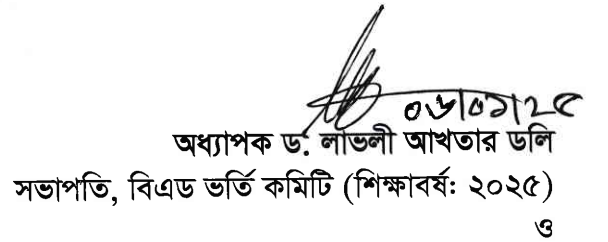 ০৬/০১/২৫
অধ্যাপক ড. লাভলী আখতার ডলি
সভাপতি, বিএড ভর্তি কমিটি (শিক্ষাবর্ষ: ২০২৫)
ও